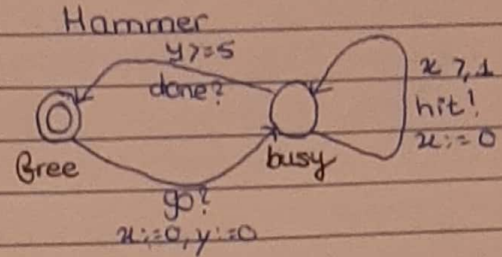 Hammer
y>=5
done?
x >, 1
hit!
x:=0
free
busy
go?
x:=0, y:=0